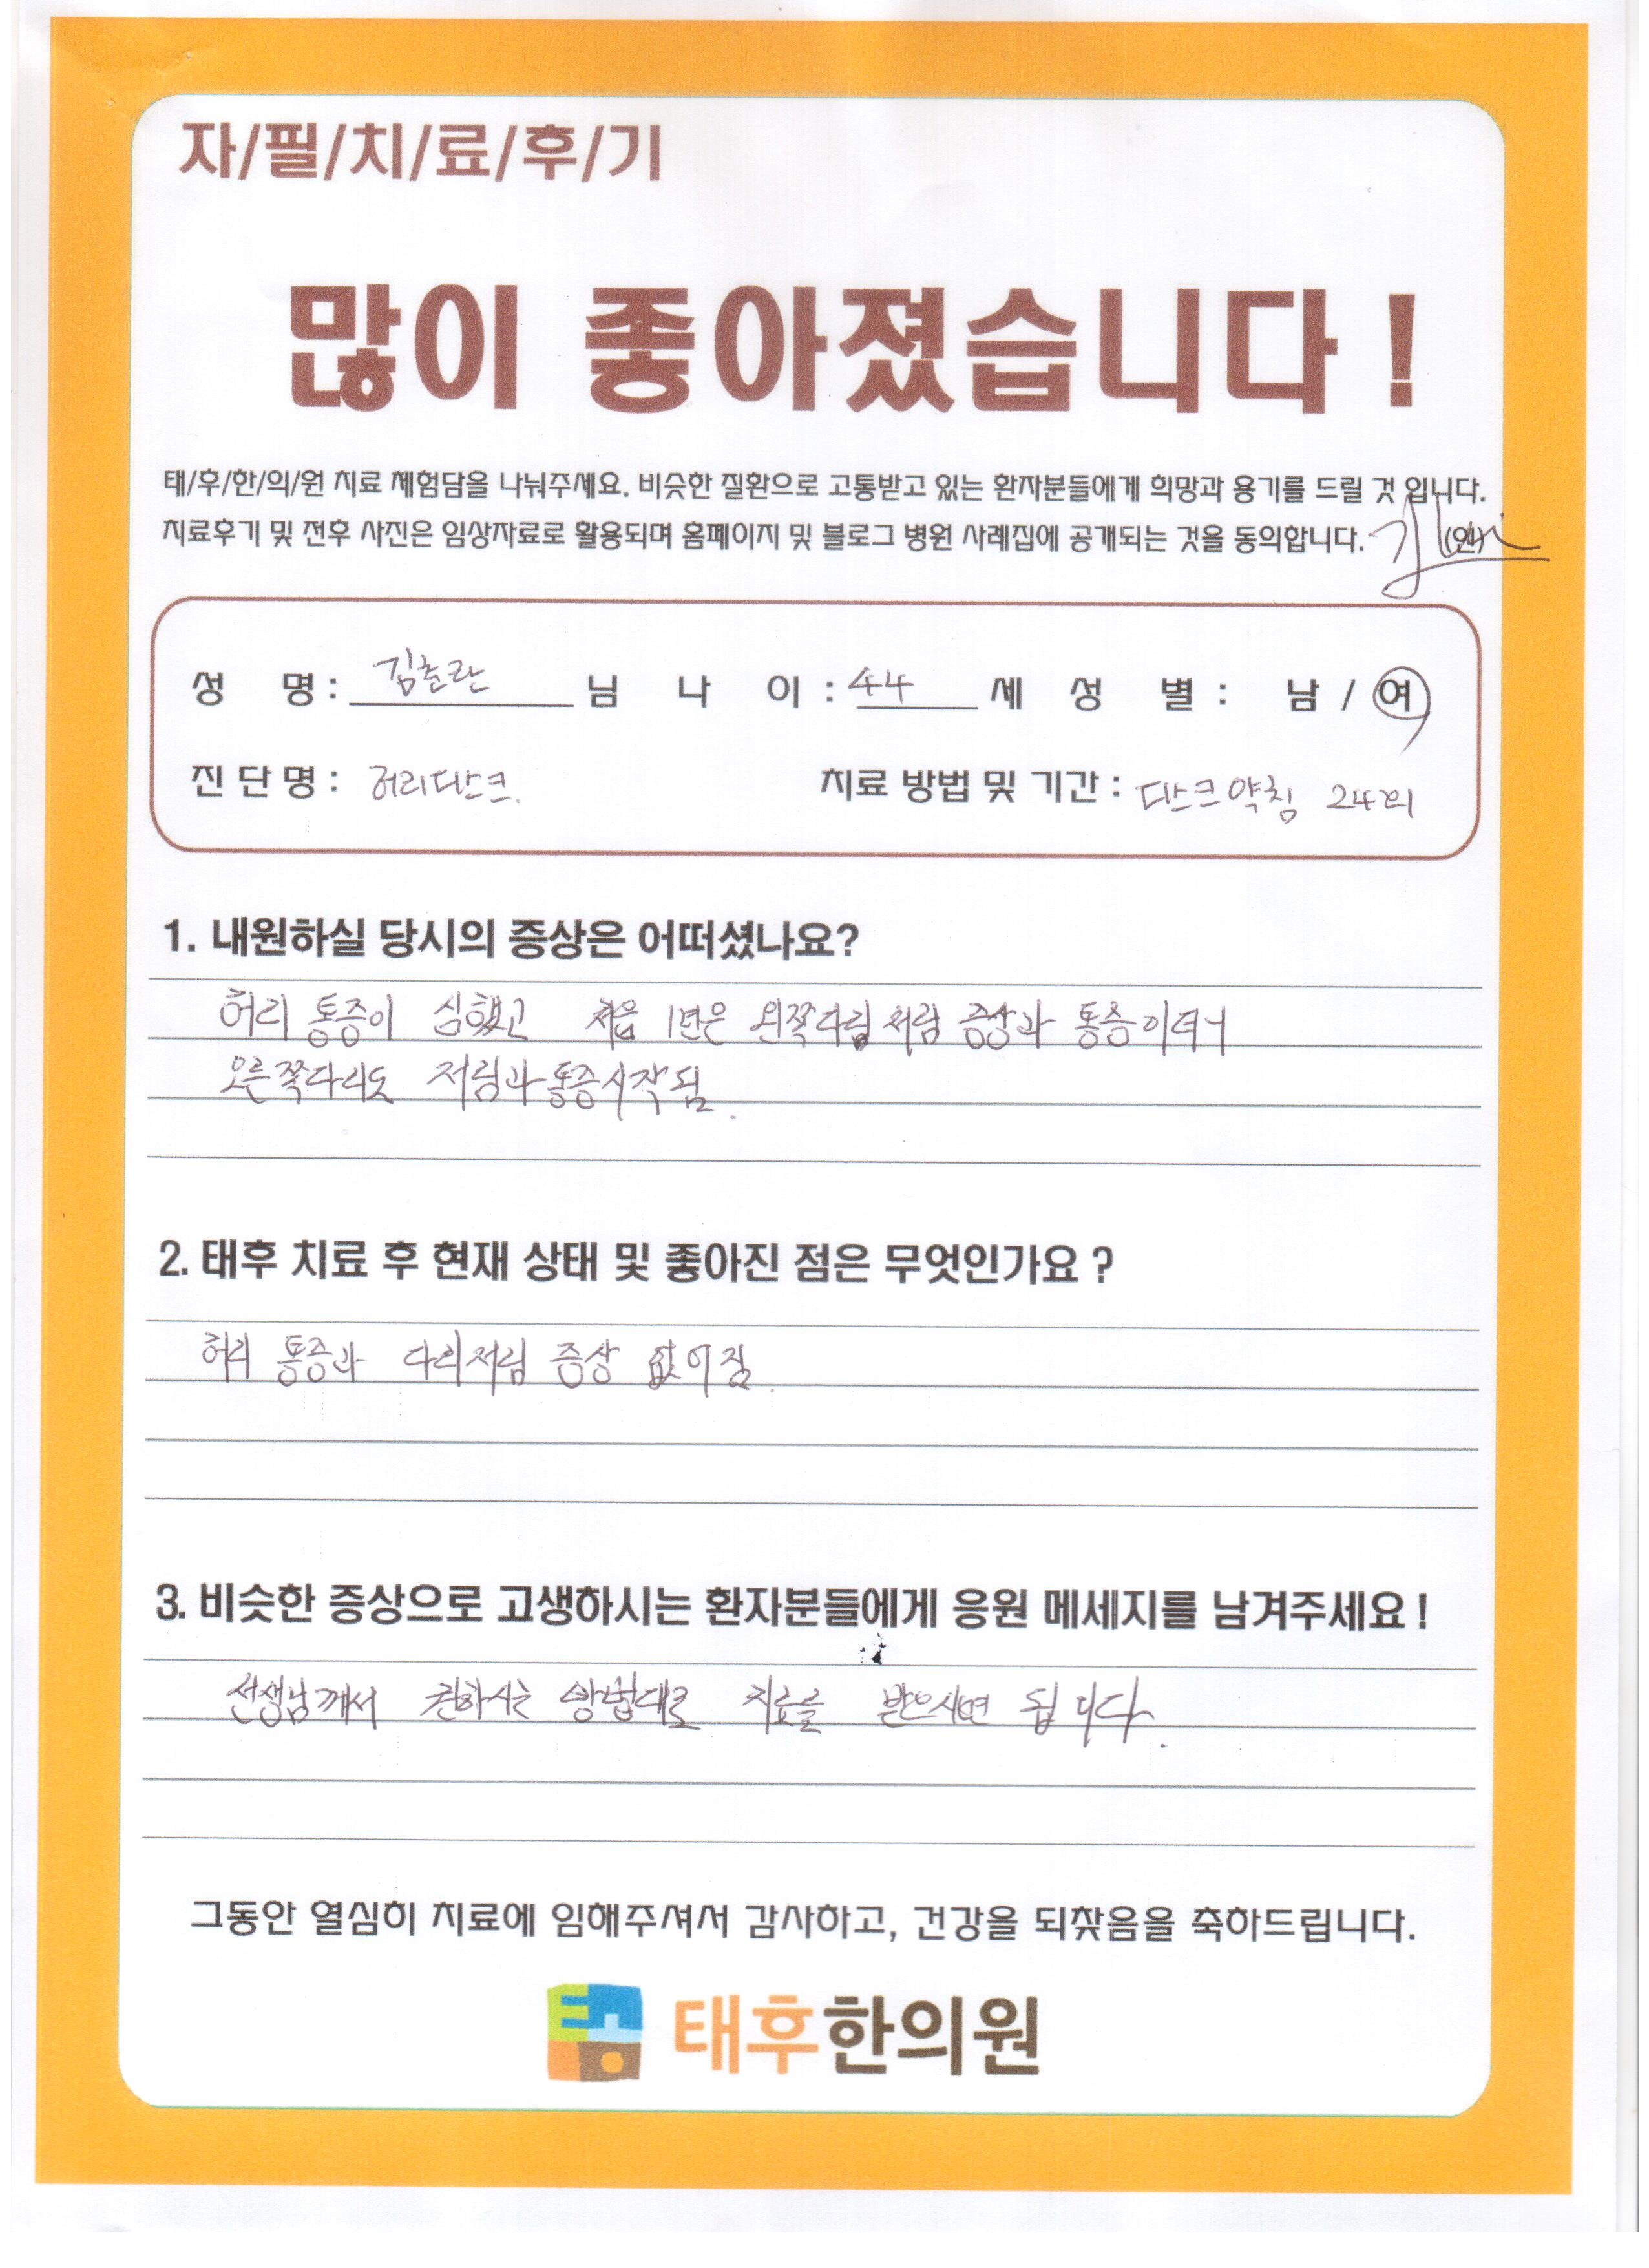 자/필/치/료/후/기
많이 좋아졌습니다 !
태/후/한/의/원 치료 체험담을 나눠주세요. 비슷한 질환으로 고통받고 있는 환자분들에게 희망과 용기를 드릴 것 입니다.
치료후기 및 전후 사진은 임상자료로 활용되며 홈페이지 및 블로그 병원 사례집에 공개되는 것을 동의합니다. (인)
성 명 : 김춘란 님 나 이 : 44 세 성 별 : 남 / 여
진 단 명 : 허리디스크. 치료 방법 및 기간 : 디스크약침 24회
1. 내원하실 당시의 증상은 어떠셨나요?
허리 통증이 심했고 처음 1년은 왼쪽다리 저림 증상과 통증이더니
오른쪽다리도 저림과 통증시작됨.
2. 태후 치료 후 현재 상태 및 좋아진 점은 무엇인가요 ?
허리 통증과 다리저림 증상 없어짐.
3. 비슷한 증상으로 고생하시는 환자분들에게 응원 메세지를 남겨주세요 !
선생님께서 권하시는 방법대로 치료를 받으시면 됩니다.
그동안 열심히 치료에 임해주셔서 감사하고, 건강을 되찾음을 축하드립니다.
태후한의원